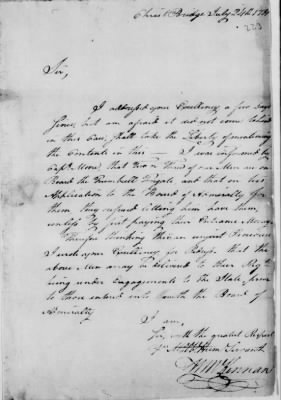 Christ. Bridge July 24th 1780
223
Sir,
I address'd your Excellency a few days
Since, but am afraid it did not come to hand
in this Case, shall take the Liberty of mentioning
the Contents in this — I was informed by
Capt. Moore, that two or three of our Men are on
Board the Trumbull Frigate and that on his
Application to the Board of Admiralty for
them they refused letting him have them,
unless by first paying their Entrance Money
Therefore thinking this an unjust Procedure
I wish your Excellency for Redress, that the
above Men may be delivered to their Regt
being under Engagements to the State, prior
to those entered into with the Board of
Admiralty
I am,
Sir, with the greatest Respect
Servant